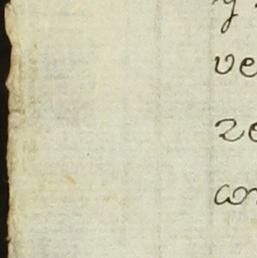 y
ve
ze
con